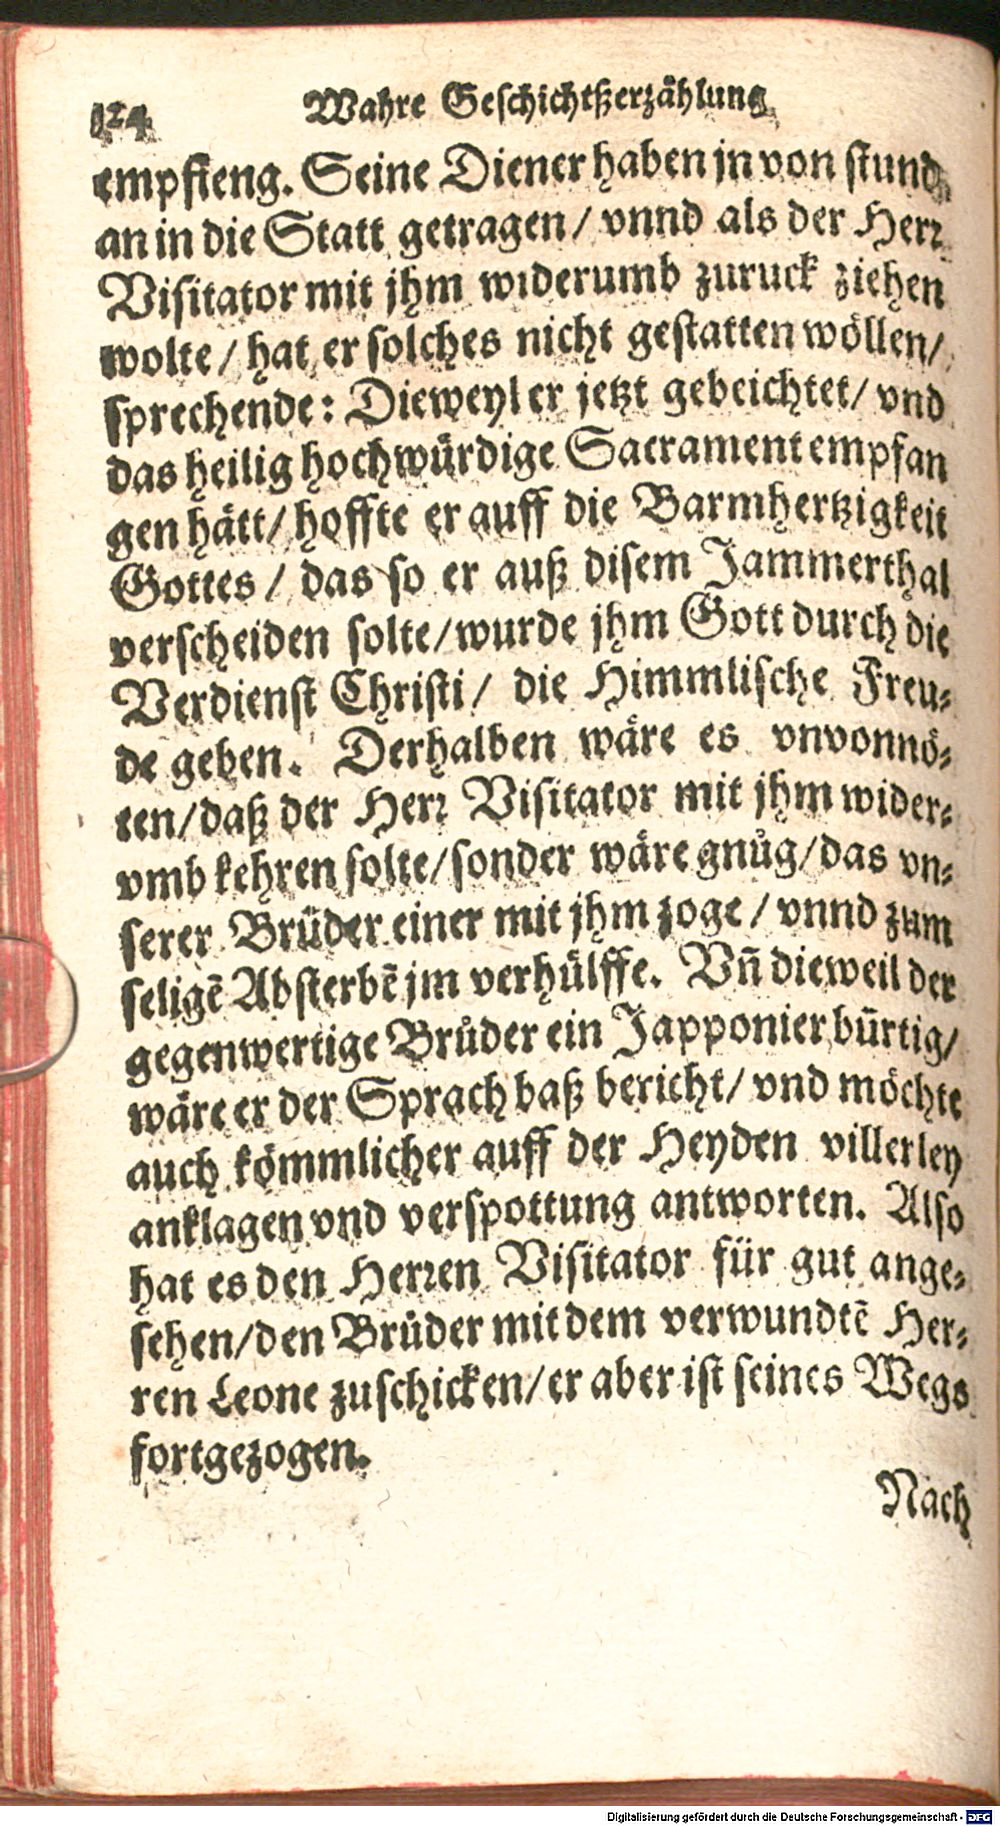 124 Wahre Geschichtßerzählung
empfieng. Seine Diener haben jn von stund
an in die Statt getragen/ vnnd als der Herr
Visitator mit jhm widerumb zuruck ziehen
wolte/ hat er solches nicht gestatten wöllen/
sprechende: Dieweyl er jetzt gebeichtet/ vnd
das heilig hochwürdige Sacrament empfan
gen hätt/ hoffte er auff die Barmhertzigkeit
Gottes/ das so er auß disem Jammerthal
verscheiden solte/ wurde jhm Gott durch die
Verdienst Christi/ die Himmlische Freu-
de geben. Derhalben wäre es vnvonnö-
ten/ daß der Herr Visitator mit jhm wider-
vmb kehren solte/ sonder wäre gnůg/ das vn-
serer Brüder einer mit jhm zoge/ vnnd zum
seligē Absterbē jm verhülffe. Vñ dieweil der
gegenwertige Brůder ein Japponier bürtig/
wäre er der Sprach baß bericht/ vnd möchte
auch kömmlicher auff der Heyden villerley
anklagen vnd verspottung antworten. Also
hat es den Herren Visitator für gut ange-
sehen/ den Brůder mit dem verwundtē Her-
ren Leone zuschicken/ er aber ist seines Wegs
fortgezogen.
Nach
Digitalisierung gefördert durch die Deutsche Forschungsgemeinschaft - DFG